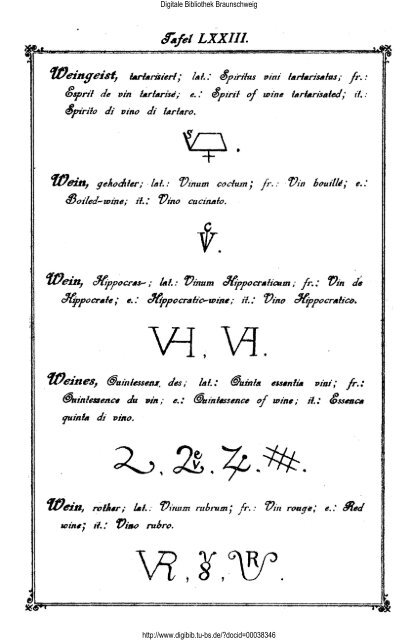 Digitale Bibliothek Braunschweig
Tafel LXXIII.
Weingeist, tartarisiert; lat.: Spiritus vini tartarisatus; fr.:
Esprit de vin tartarisé; e.: Spirit of wine tartarisated; it.:
Spirito di vino di tartaro.
S
Wein, gekochter; lat.: Vinum coctum; fr.: Vin bouillé; e.:
Boiled-wine; it.: Vino cucinato.
C
V.
Wein, Hippocras-; lat.: Vinum Hippocraticum; fr.: Vin de
Hippocrate; e.: Hippocratic-wine; it.: Vino Hippocratico.
VH, VH.
Weines, Quintessenz, des; lat.: Quinta essentia vini; fr.:
Quintessence du vin; e.: Quintessence of wine; it.: Essenca
quinta di vino.
Wein, rother; lat.: Vinum rubrum; fr.: Vin rouge; e.: Red
wine; it.: Vino rubro.
VR
http://www.digibib.tu-bs.de/?docid=00038346